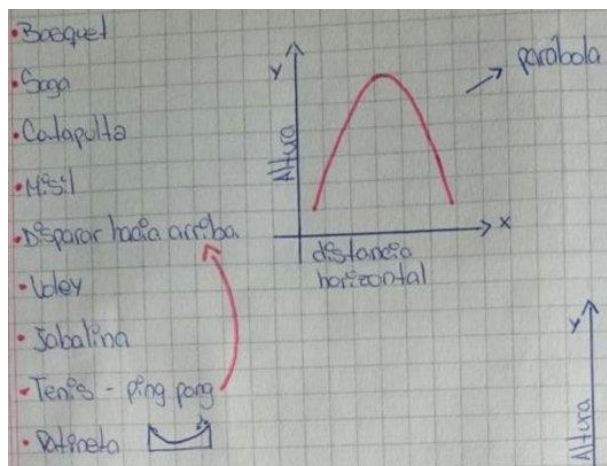 • Basquet
• Soga
• Catapulta
• Misil
• Disparar hacia arriba
• Voley
• Jabalina
• Tenis - ping pong
• Patineta
y
Altura
parábola
x
distancia
horizontal
y
Altura